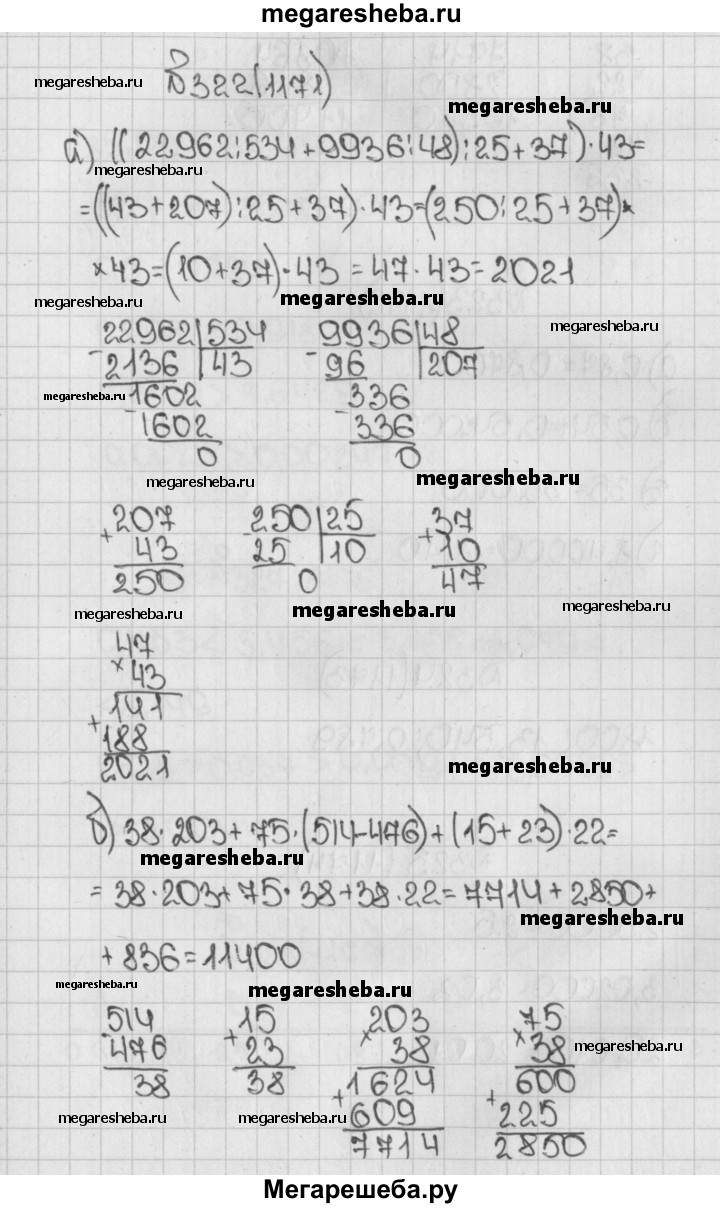 megaresheba.ru
№322(1171)
megaresheba.ru
megaresheba.ru
а) ((22962:534+9936:48):25+37)·43=
megaresheba.ru
=((43+207):25+37)·43=(250:25+37)×
×43=(10+37)·43=47·43=2021
megaresheba.ru megaresheba.ru
22962|534 9936|48 megaresheba.ru
-2136|43 -96|207
megaresheba.ru 1602 336
-1602 -336
0 0
megaresheba.ru megaresheba.ru
207 250|25 37
+43 -25|10 +10
250 0 47
megaresheba.ru megaresheba.ru megaresheba.ru
47
×43
141
+188
2021
megaresheba.ru
б) 38·203+75·(514-476)+(15+23)·22=
megaresheba.ru
=38·203+75·38+38·22=7714+2850+
megaresheba.ru
+836=11400
megaresheba.ru megaresheba.ru
514 15 203 75
-476 +23 ×38 ×38 megaresheba.ru
38 38 1624 600
megaresheba.ru megaresheba.ru +609 +225
7714 2850
Мегарешеба.ру